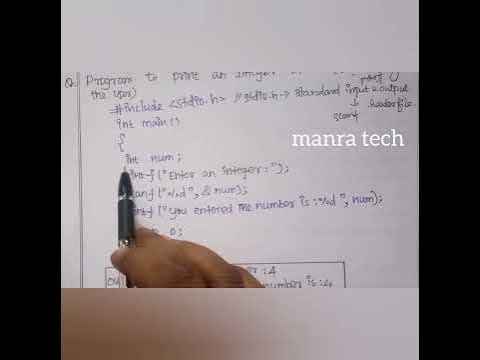 Q. Program to print an integer
the user)
#include <stdio.h> // stdio.h → standard input & output
int main() scanf header file
manra tech
{
int num;
("Enter an integer: ");
("%d", & num);
("you entered the number is :%d", num);
0;
:4
number is :4